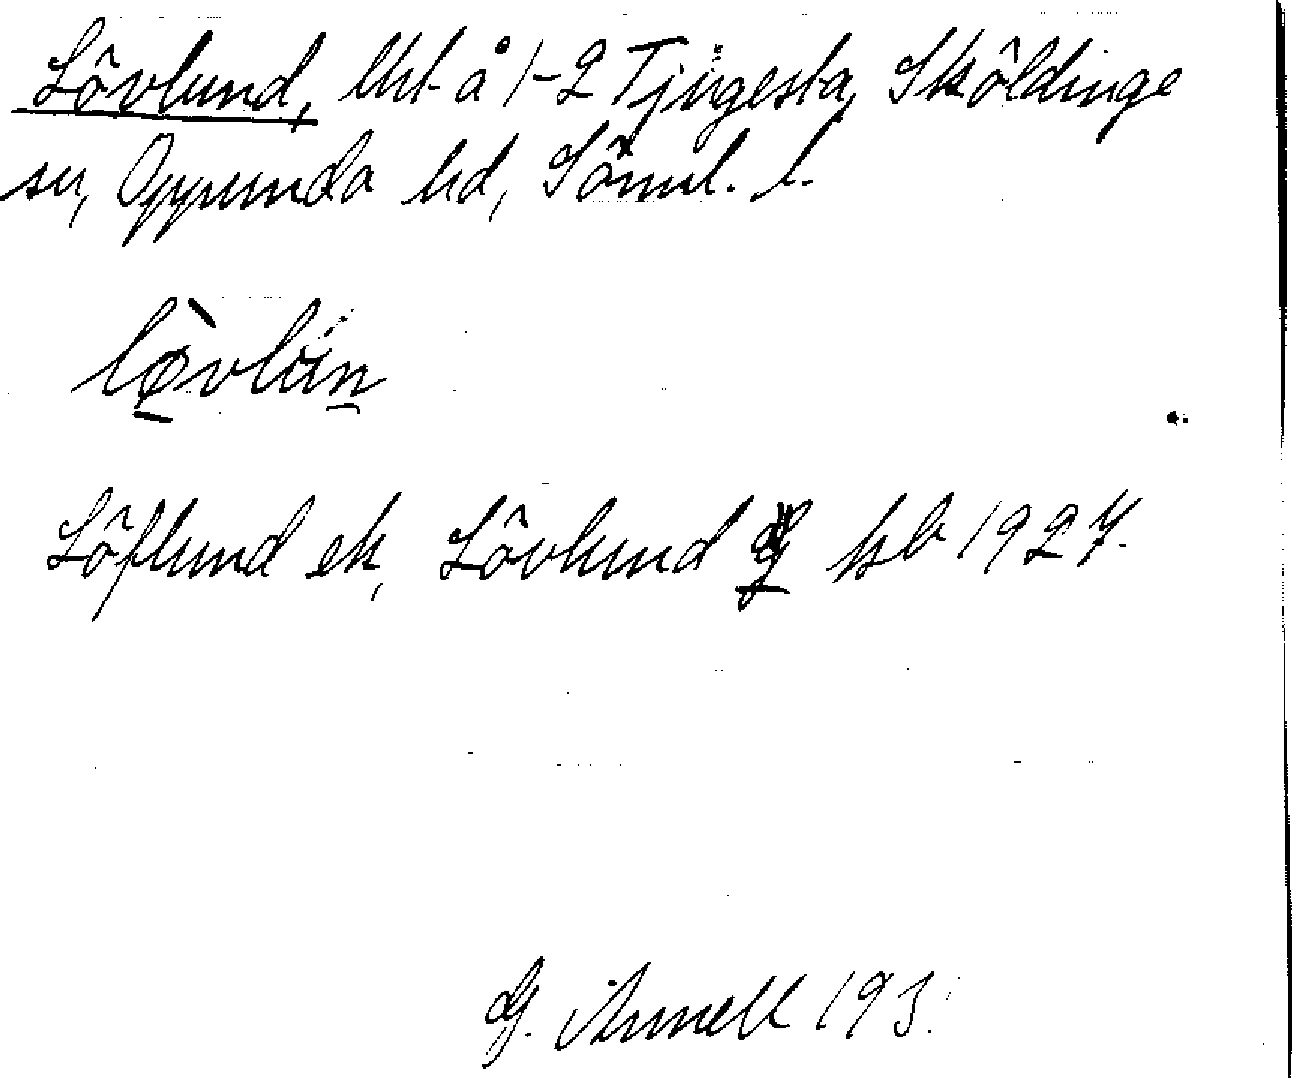 Lövlund, lht å 1-2 Tjugesta, Sköldinge
sn, Oppunda hd, Söml. l.
lø̀vlun
Löflund ek, Lövlund G hb 1927.
G. Annell 193